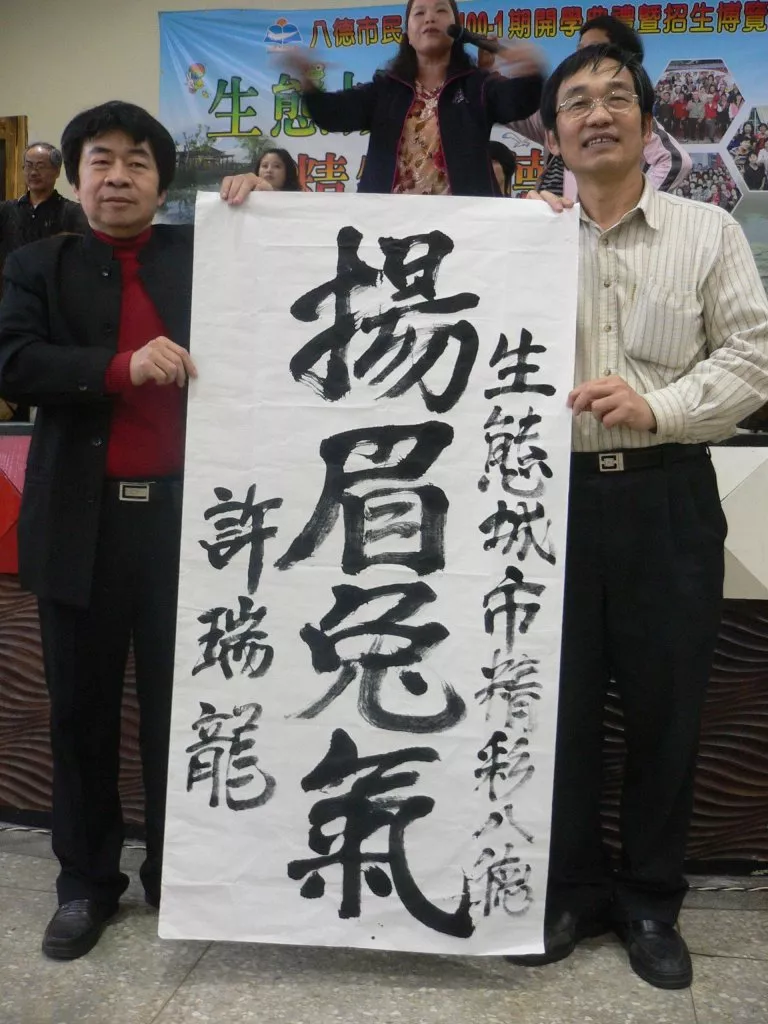 八德市民
100-1期開學典禮暨招生博覽
生態
精
生態城市精彩八德
揚眉兔氣
許瑞龍